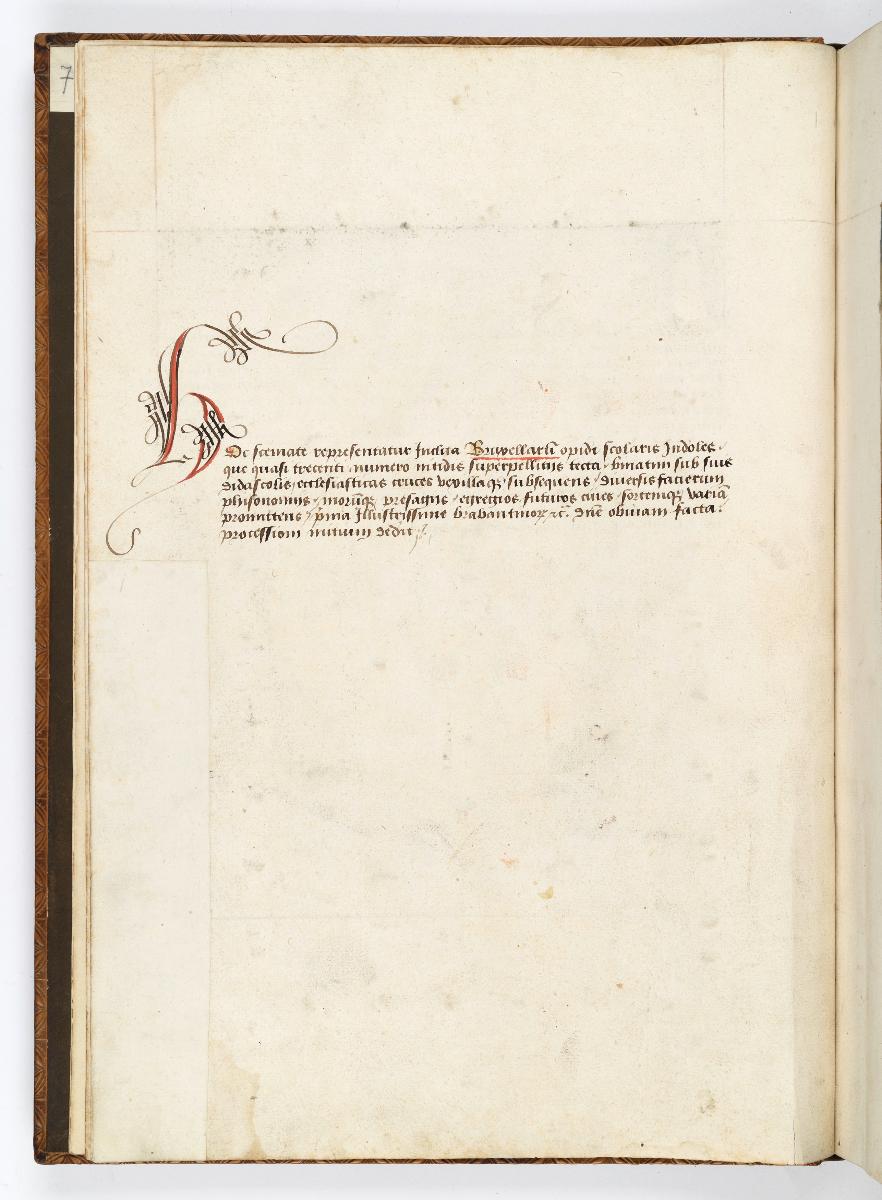 7
Hoc scemate representatur Inclita Bruxellarū opidi scolaris Indoles.
que quasi trecenti numero nitidis superpellitijs tecta / binatim sub suis
didascolis / ecclesiasticas cruces vexillaqꝫ subsequens / diversis facierum
phisonomijs / morūqꝫ presagijs / egregios futuros cives / sortemqꝫ variā
promittens / pͥma Illustrissime brabantinoꝝ ⁊c̄. dn̄e obviam facta.
processioni initium dedit ./.